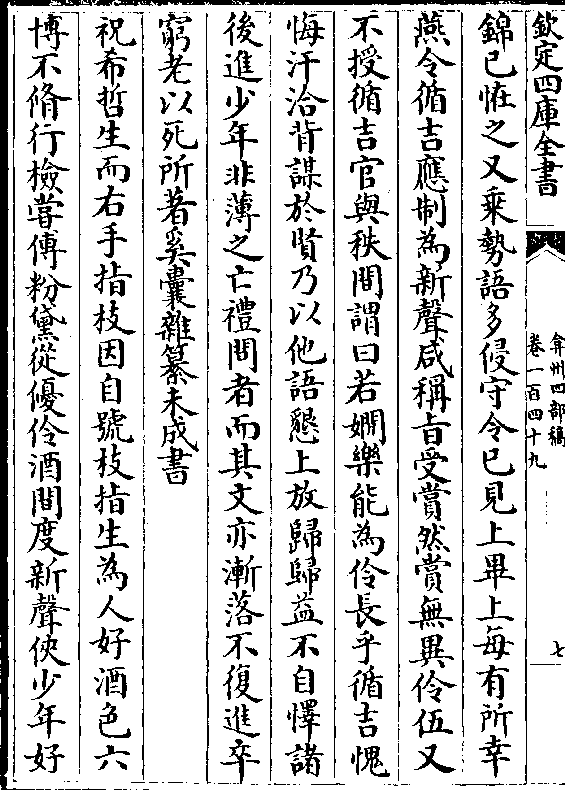 欽定四庫全書
弇州四部稿
卷一百四十九
七
錦已恠之又乘勢語多侵守令已見上畢上每有所幸
燕令循吉應制為新聲咸稱㫖受賞然賞無異伶伍又
不授循吉官與秩間謂曰若嫺樂能為伶長乎循吉愧
悔汗洽背謀於賢乃以他語懇上放歸歸益不自懌諸
後進少年非薄之亡禮問者而其文亦漸落不復進卒
窮老以死所著奚囊雜纂未成書
祝希哲生而右手指枝因自號枝指生為人好酒色六
博不脩行檢嘗傅粉黛從優伶酒間度新聲俠少年好